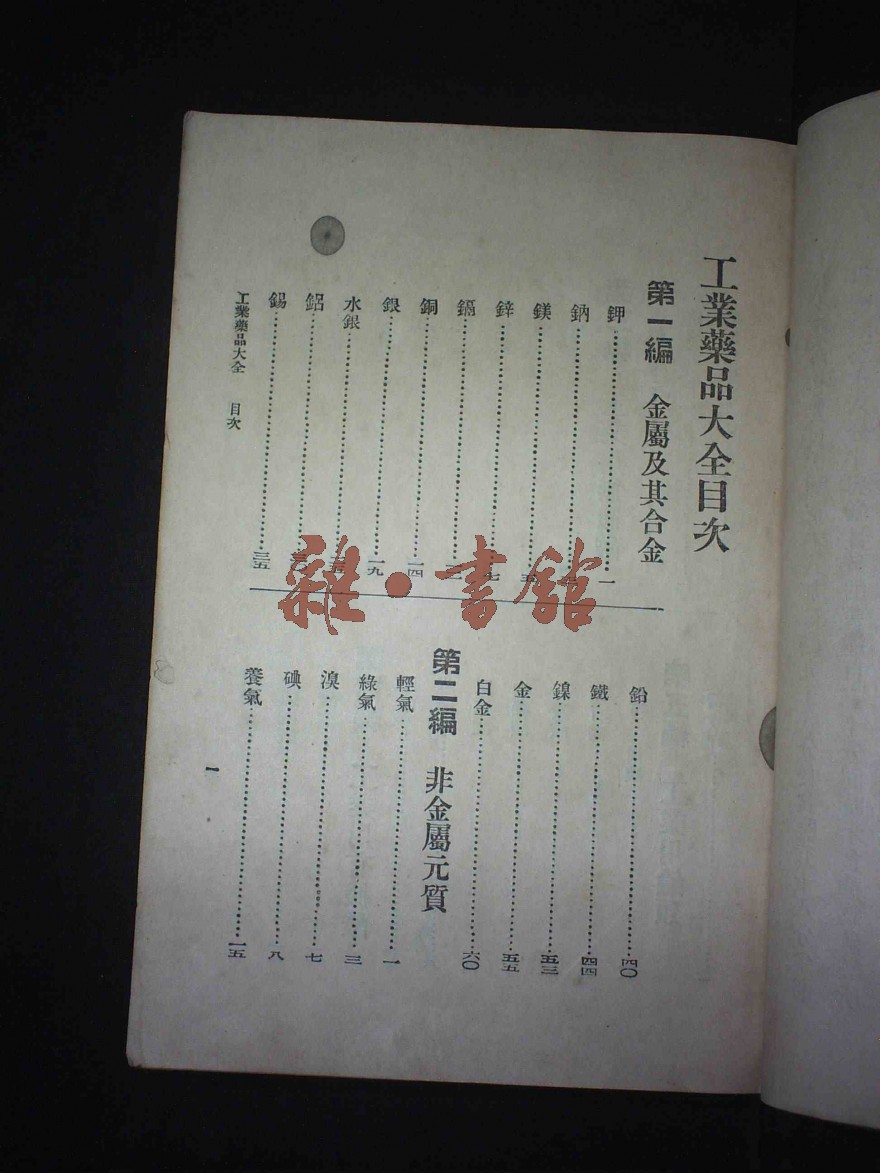 工業藥品大全目次
第一編 金屬及其合金
鉀……一
鈉……
鎂……五
鋅……七
鎘……
銅……一四
銀……一九
水銀……
鋁……
錫……三五
鉛……四〇
鐵……四四
鎳……五三
金……五五
白金……六〇
第二編 非金屬元質
輕氣……一
綠氣……三
溴……七
碘……八
養氣……一五
工業藥品大全 目次
一
雜·書館